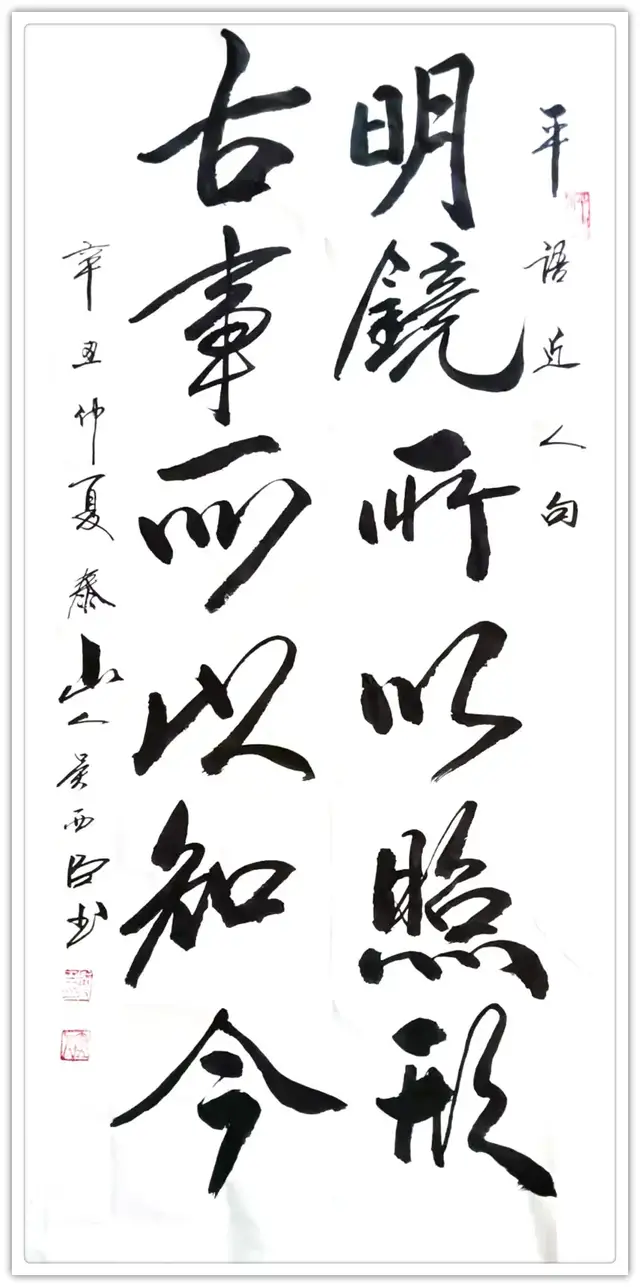 平語近人句
明鏡所以照形
古事所以知今
辛丑仲夏泰山人吴西书